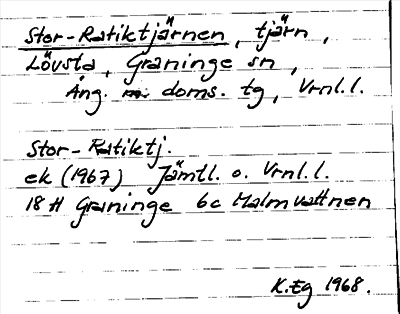 Stor-Ratiktjärnen, tjärn,
Lövsta, Graninge sn,
Ång. m. doms. tg, Vrnl.l.
Stor-Ratiktj.
ek (1967) Jämtl. o. Vrnl.l.
18 H Graninge 6c Malmvattnen
K.Eg 1968.